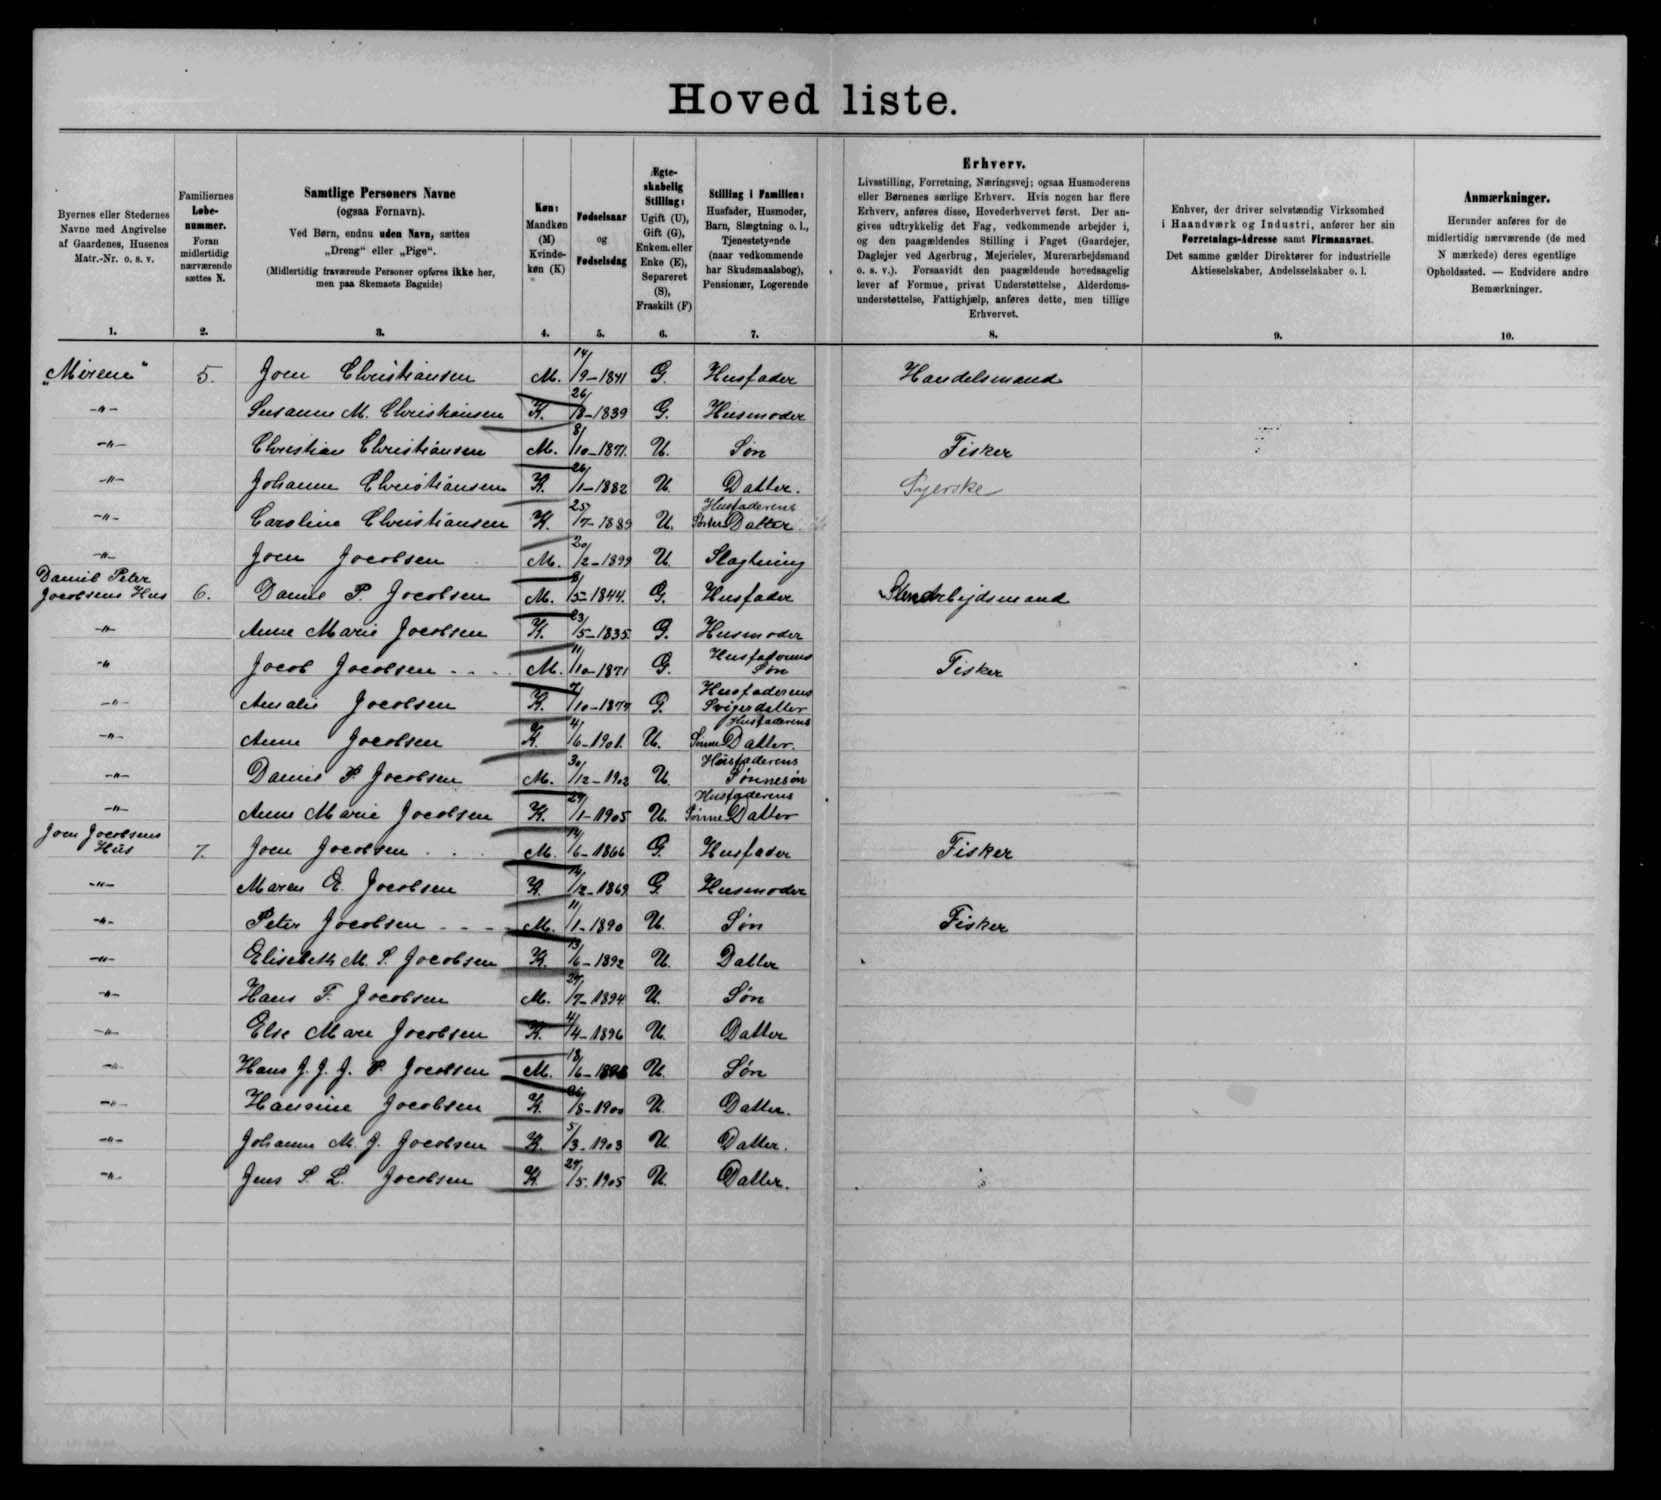 Hoved liste.
Byernes eller Stedernes
Navne med Angivelse
af Gaardenes, Husenes
Matr.-Nr. o. s. v.
1.
Familiernes
Løbe-
nummer.
Foran
midlertidig
nærværende
sættes N.
2.
Samtlige Personers Navne
(ogsaa Fornavn).
Ved Børn, endnu uden Navn, sættes
„Dreng“ eller „Pige“.
(Midlertidig fraværende Personer opføres ikke her,
men paa Skemaets Bagside)
3.
Køn:
Mandkøn
(M)
Kvinde-
køn (K)
4.
Fødselsaar
og
Fødselsdag
5.
Ægte-
skabelig
Stilling:
Ugift (U),
Gift (G),
Enkem. eller
Enke (E),
Separeret
(S),
Fraskilt (F)
6.
Stilling i Familien:
Husfader, Husmoder,
Barn, Slægtning o. l.,
Tjenestetyende
(naar vedkommende
har Skudsmaalsbog),
Pensionær, Logerende
7.
Erhverv.
Livsstilling, Forretning, Næringsvej; ogsaa Husmoderens
eller Børnenes særlige Erhverv. Hvis nogen har flere
Erhverv, anføres disse, Hovederhvervet først. Der an-
gives udtrykkelig det Fag, vedkommende arbejder i,
og den paagældendes Stilling i Faget (Gaardejer,
Daglejer ved Agerbrug, Mejerielev, Murerarbejdsmand
o. s. v.). Forsaavidt den paagældende hovedsagelig
lever af Formue, privat Understøttelse, Alderdoms-
understøttelse, Fattighjælp, anføres dette, men tillige
Erhvervet.
8.
Enhver, der driver selvstændig Virksomhed
i Haandværk og Industri, anfører her sin
Forretnings-Adresse samt Firmanavnet.
Det samme gælder Direktører for industrielle
Aktieselskaber, Andelsselskaber o. l.
9.
Anmærkninger.
Herunder anføres for de
midlertidig nærværende (de med
N mærkede) deres egentlige
Opholdssted. — Endvidere andre
Bemærkninger.
10.
„Mirene“ 5. Joen Christiansen M. 14/9-1841 G. Husfader Handelsmand
-"- Susanne M. Christiansen K. 26/8-1839 G. Husmoder
-"- Christian Christiansen M. 8/10-1871. U. Søn Fisker
-"- Johanne Christiansen K. 26/1-1882 U. Datter. Syerske
-"- Caroline Christiansen K. 25/7-1889 U. Husfaderens Datter
-"- Joen Jacobsen M. 20/2-1899 U. Slagtning
Daniel Peter
Jacobsens Hus 6. Daniel P. Jacobsen M. 8/5-1844. G. Husfader Stenarbejdsmand
-"- Anne Marie Jacobsen K. 23/5-1835 G. Husmoder
-"- Jacob Jacobsen M. 11/10-1871 G. Husfaderens Søn Fisker
-"- Amalie Jacobsen K. 7/10-1877 G. Husfaderens Svigerdatter
-"- Anne Jacobsen K. 4/6-1901. U. Husfaderens SønneDatter
-"- Daniel P. Jacobsen M. 30/12-1902 U. Husfaderens Sønnesøn
-"- Anne Marie Jacobsen K. 29/1-1905 U. Husfaderens SønneDatter
Joen Jacobsens
Hus 7. Joen Jacobsen M. 14/6-1866 G. Husfader Fisker
-"- Maren E. Jacobsen K. 14/12-1869 G. Husmoder
-"- Peter Jacobsen M. 11/1-1890 U. Søn Fisker
-"- Elisebeth M. S. Jacobsen K. 13/6-1892 U. Datter
-"- Hans F. Jacobsen M. 27/7-1894 U. Søn
-"- Else Marie Jacobsen K. 4/4-1896 U. Datter
-"- Hans J. J. J. P. Jacobsen M. 18/6-1898 U. Søn
-"- Hansine Jacobsen K. 26/8-1900 U. Datter.
-"- Johanne M. J. Jacobsen K. 5/3-1903 U. Datter.
-"- Jens S. L. Jacobsen K. 27/5-1905 U. Datter.